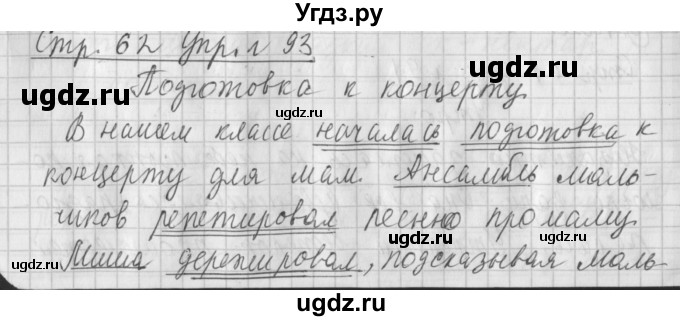 Угдз.ру
Стр. 62 Упр. 93
Подготовка к концерту
ugdz.ru ugdz.ru
ugdz.ru
В нашем классе началась подготовка к
концерту для мам. Ансамбль маль-
ugdz.ru
чиков репетировал песню про маму
ugdz.ru ugdz.ru
Миша дережировал, подсказывая маль-
ugdz.ru
ugdz.ru
ugdz.ru